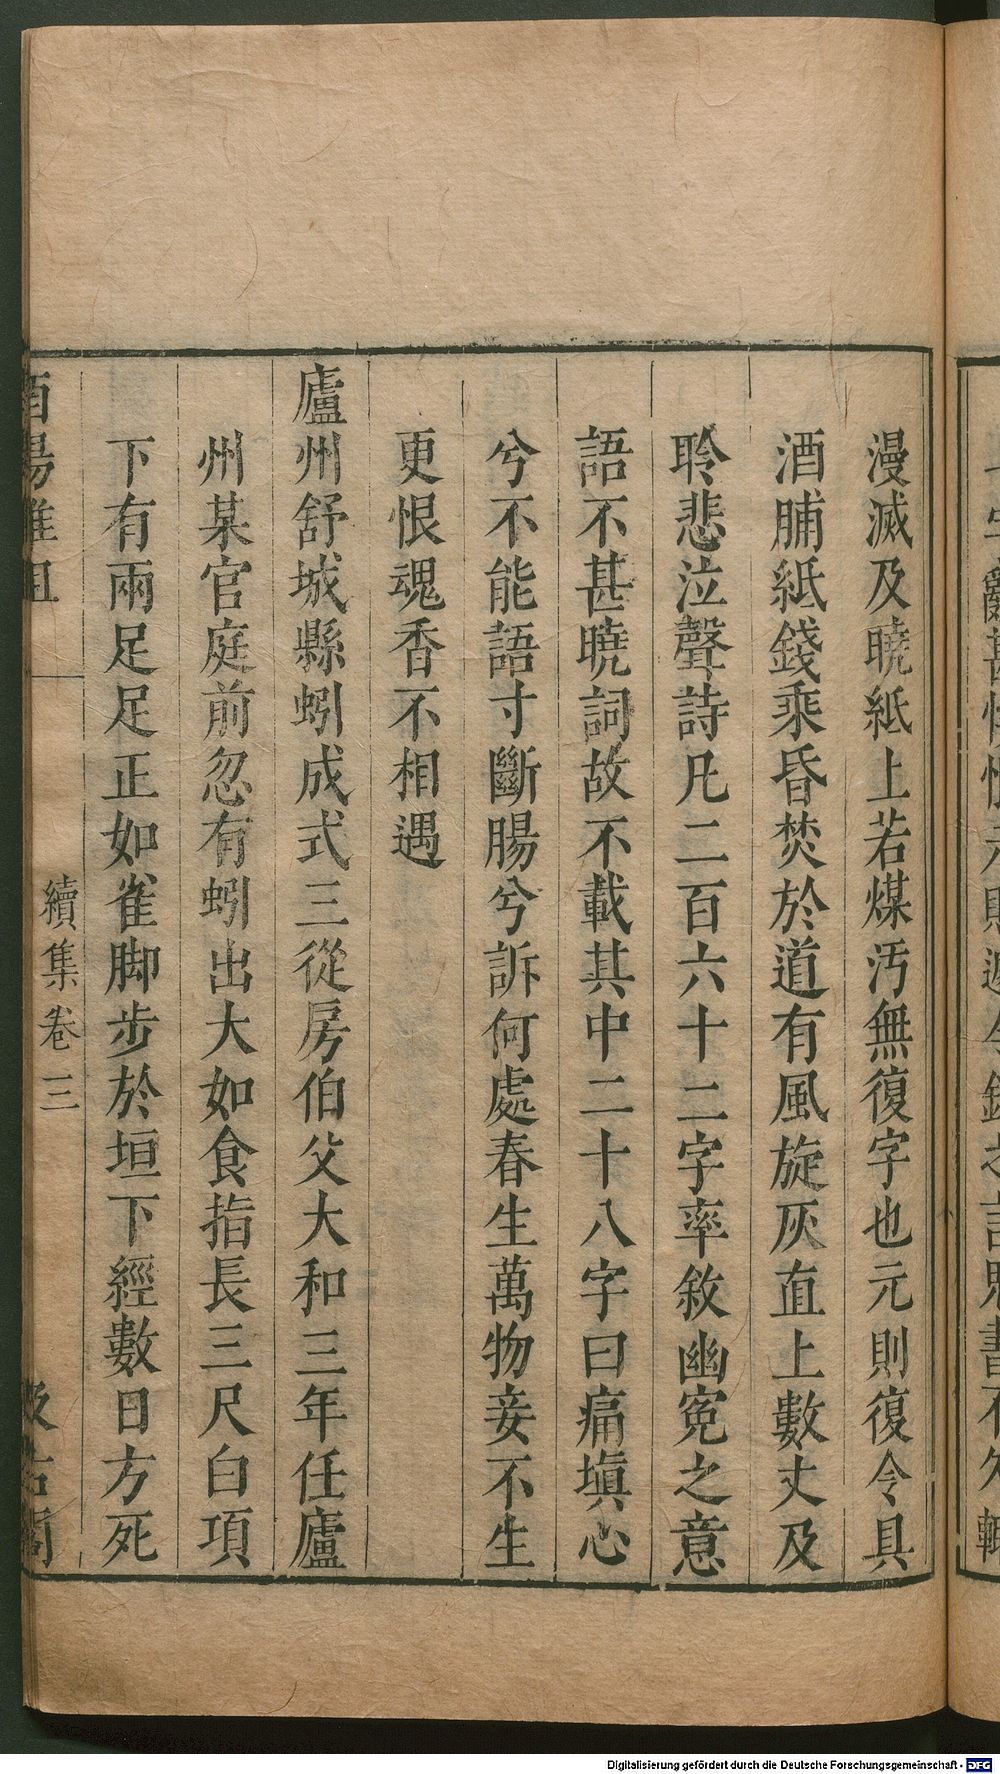 漫滅及曉紙上若煤汚無復字也元則復令具
酒脯紙錢乘昏焚於道有風旋灰直上數丈及
聆悲泣聲詩凡二百六十二字率敘幽寃之意
語不甚曉詞故不載其中二十八字曰痛塡心
兮不能語寸斷腸兮訴何處春生萬物妾不生
更恨魂香不相遇
廬州舒城縣蚓成式三從房伯父大和三年任廬
州某官庭前忽有蚓出大如食指長三尺白項
下有兩足足正如雀脚步於垣下經數日方死
酉陽雜俎
續集卷三
汲古閣
Digitalisierung gefördert durch die Deutsche Forschungsgemeinschaft - DFG